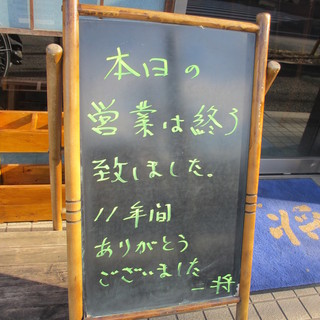 本日の
営業は終う
致しました。
11年間
ありがとう
ございました
一将
将